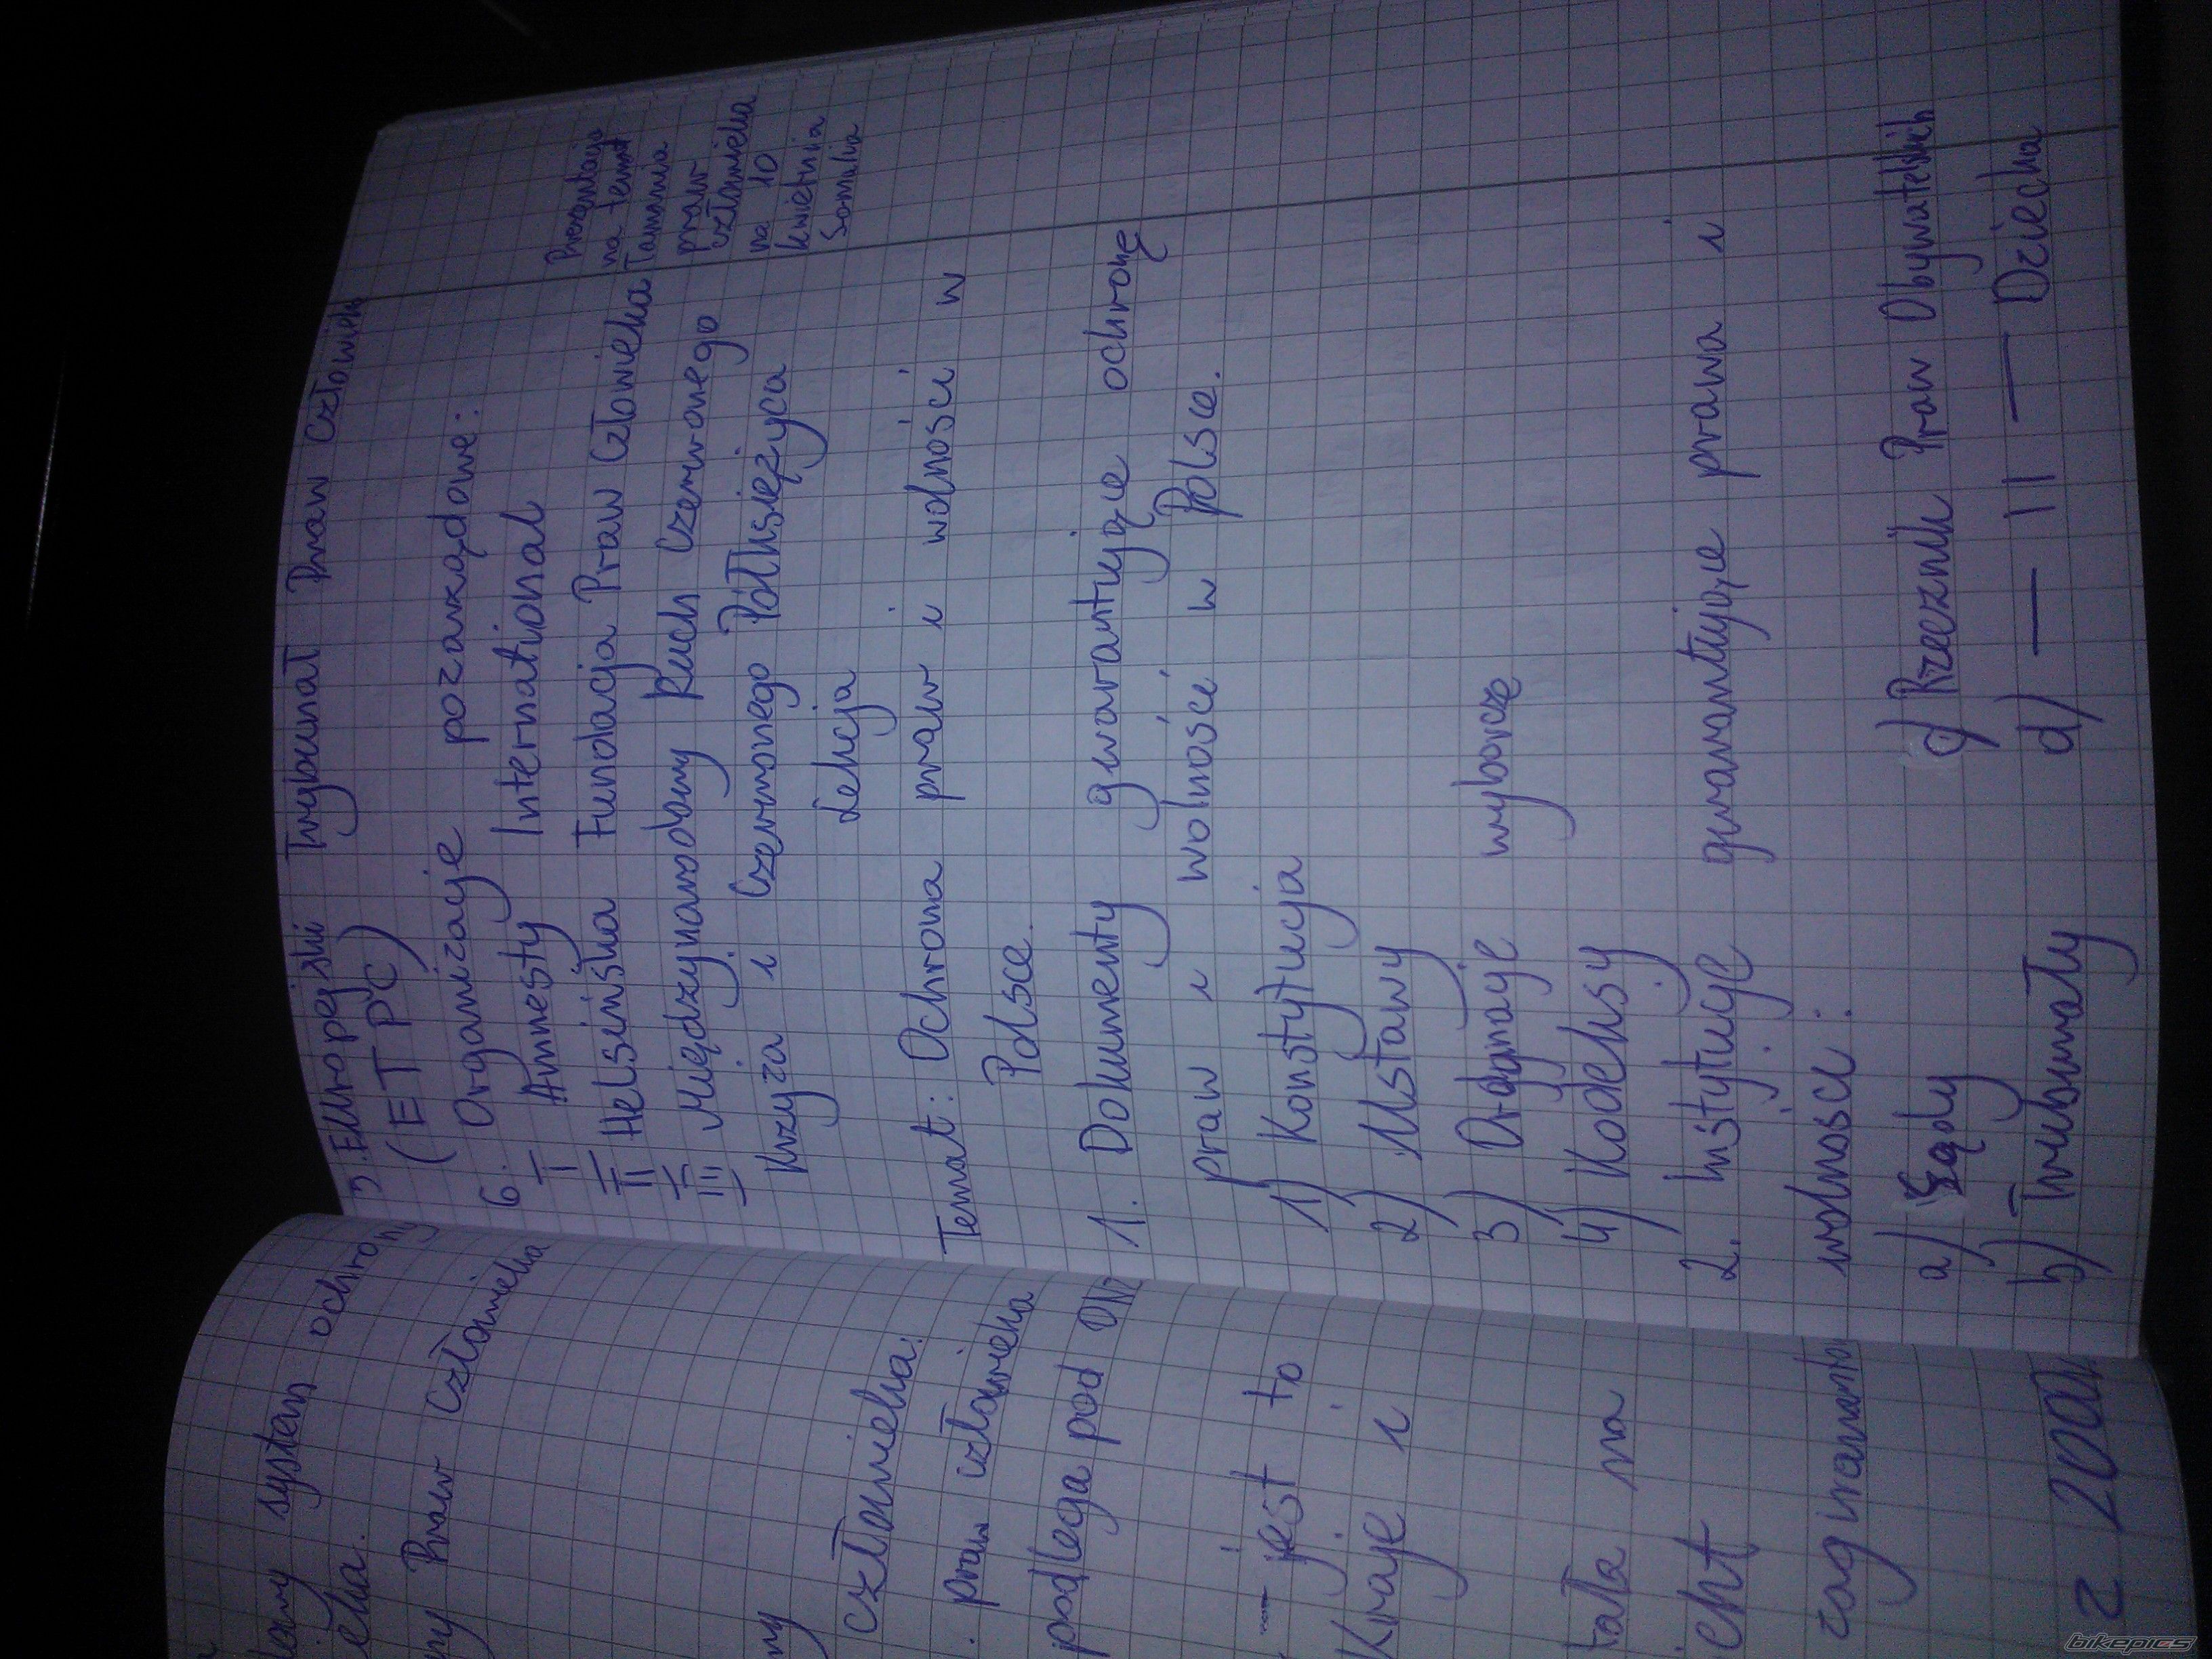 lowy system ochrony
eka.
ny Praw Człowieka
ny
człowieka:
praw człowieka
podlega pod ONZ
- jest to
Kraje i
tała na
z 200
5. Europejski Trybunał Praw Człowieka
(ETPC)
6. Organizacje pozarządowe:
I Amnesty International
II Helsińska Fundacja Praw Człowieka
III Międzynarodowy Ruch Czerwonego
Krzyża i Czerwonego Półksiężyca
Lekcja
Temat: Ochrona praw i wolności w
Polsce.
1. Dokumenty gwarantujące ochronę
praw i wolności w Polsce.
1) Konstytucja
2) Ustawy
3) Ordynacje wyborcze
4) Kodeksy
2. Instytucje gwarantujące prawa i
wolności:
a) Sądy
b) Trybunały
c) Rzecznik Praw Obywatelskich
d) — 11 — Dziecka
Prezentacja
na temat
łamania
praw
człowieka
na 10
kwietnia
Somalia
bikepics